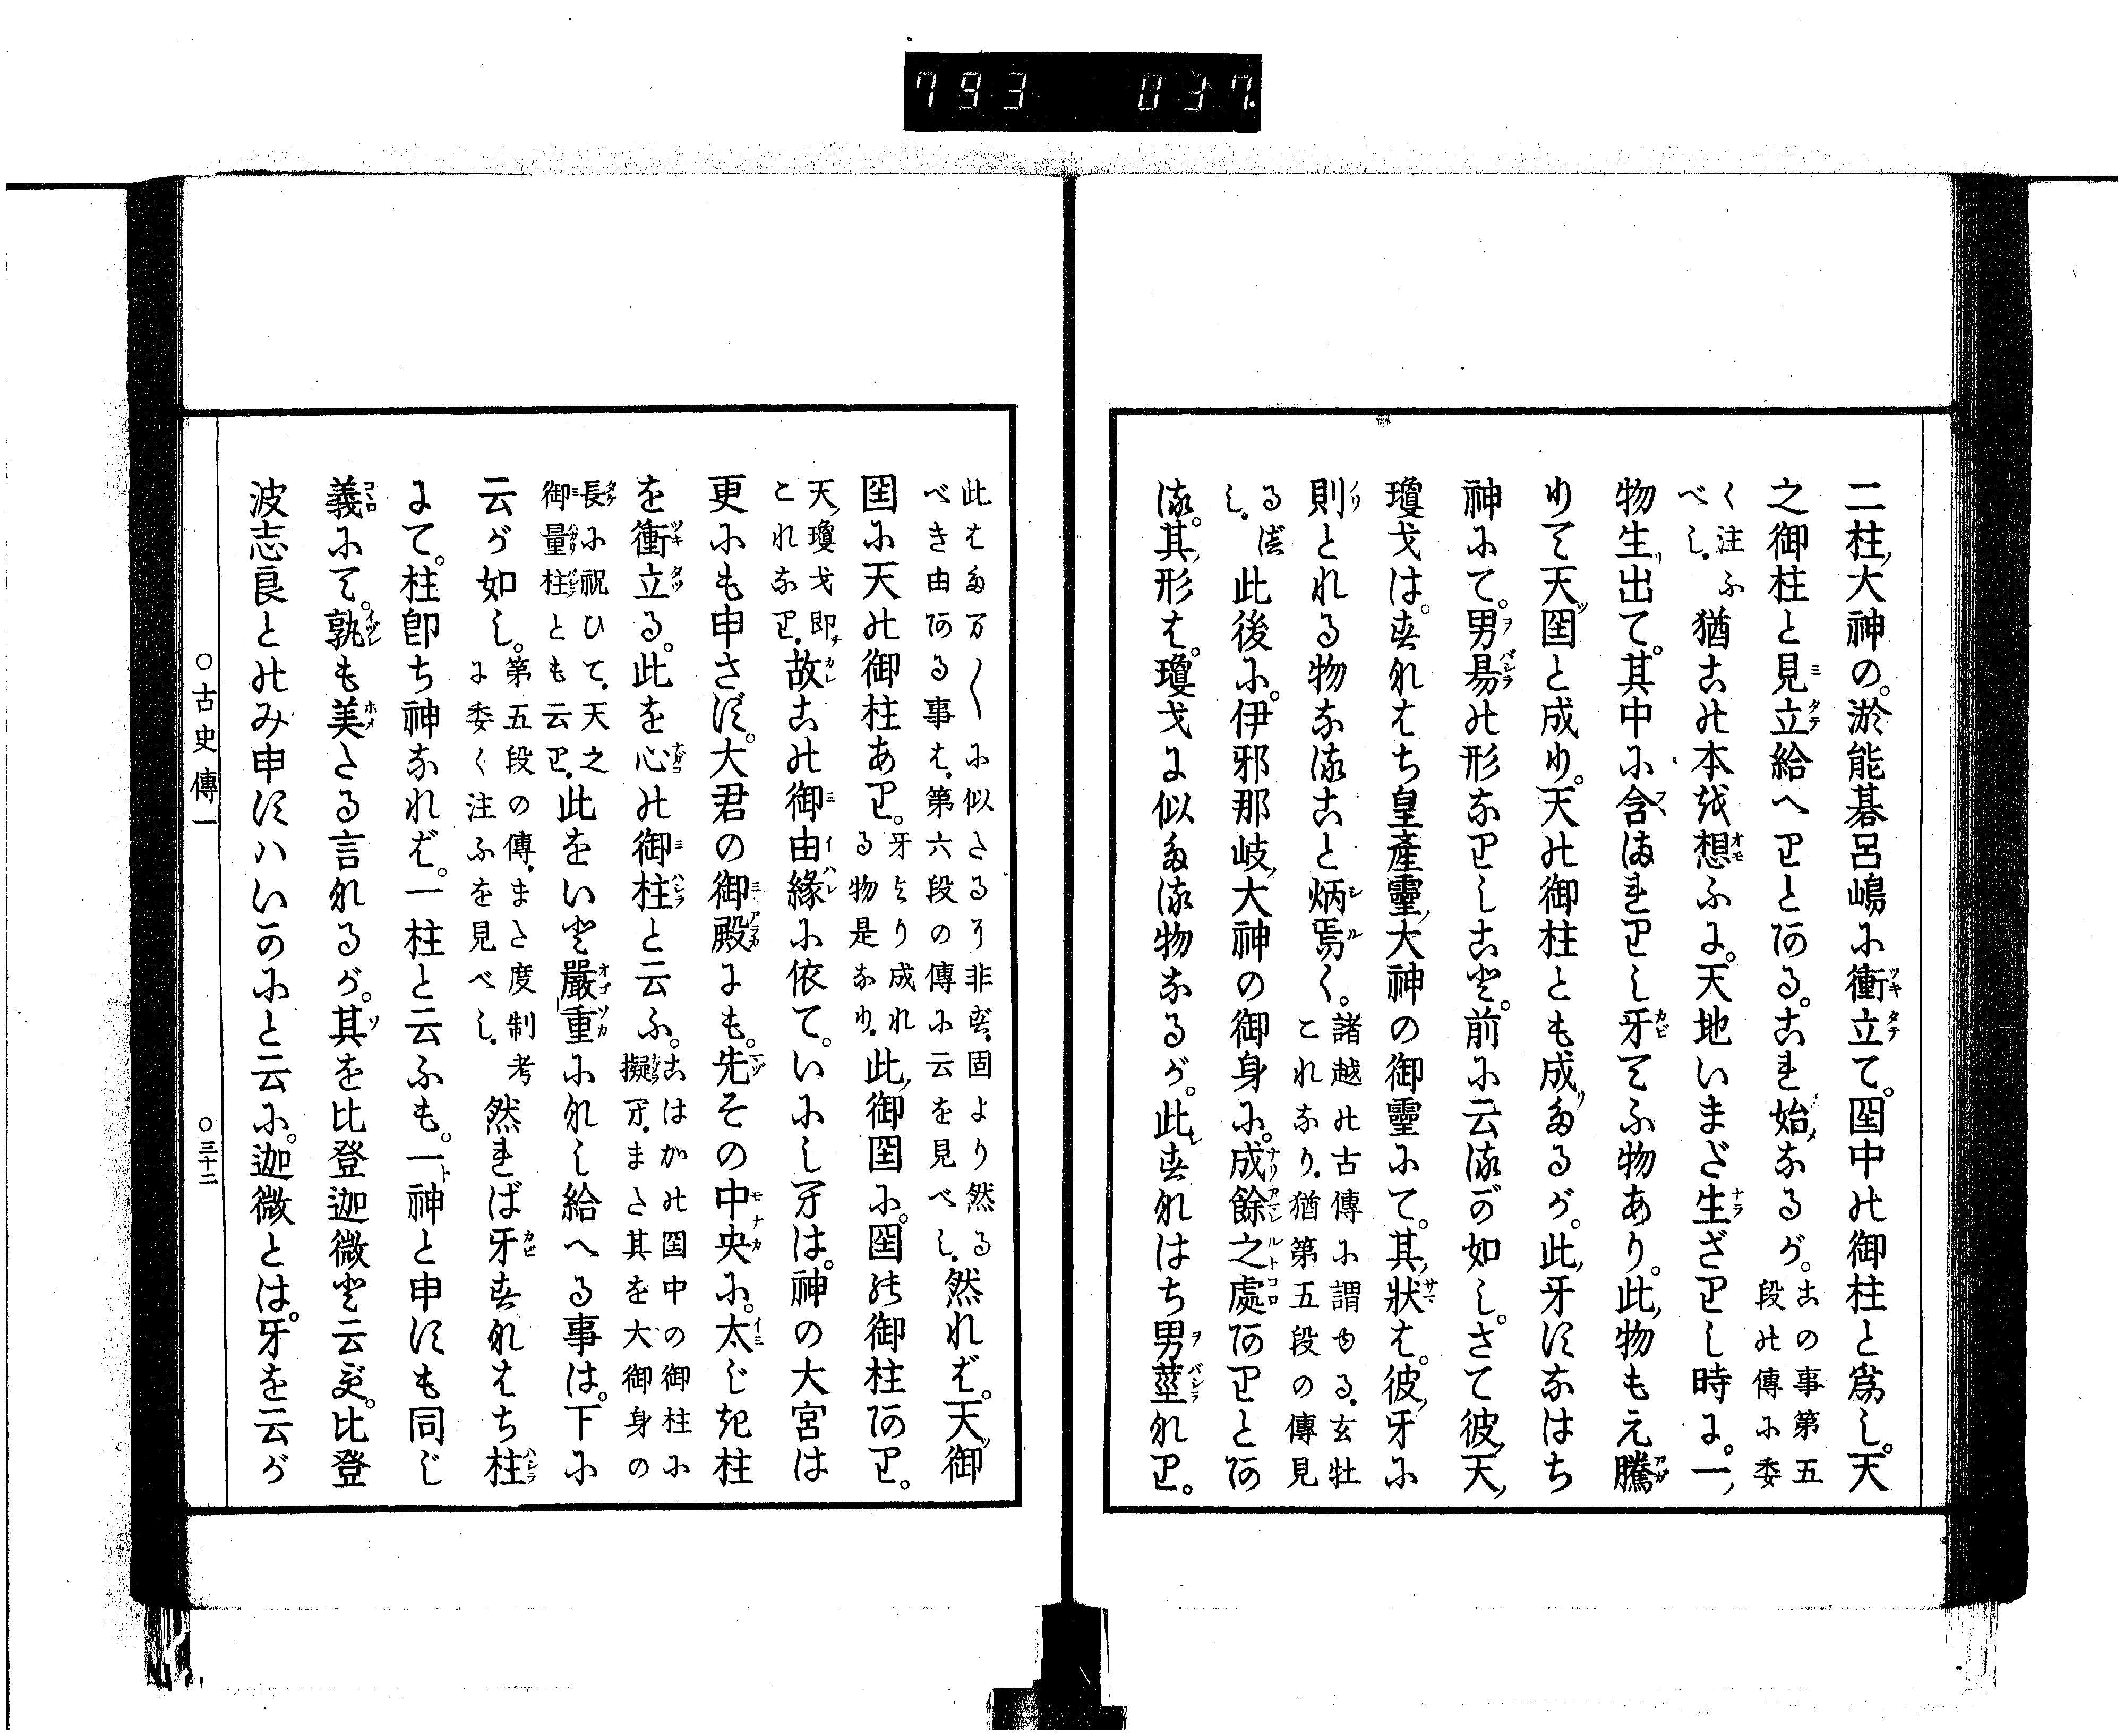 793 037.
二柱大神の。淤能碁呂嶋に衝立て。国中の御柱と為し。天
之御柱と見立給へりとある。これ始なるが。この事第五段の傳に委
く注ふべし。猶この本を想ふに。天地いまだ生ざりし時に。一
物生出て。其中に含まれりし牙てふ物あり。此物もえ騰
りて天国と成り。天の御柱とも成たるが。此牙すなはち
神にて。男昜の形なりしこと。前に云るが如し。さて彼天
瓊戈は。すなはち皇産靈大神の御靈にて。其狀は。彼牙に
則とれる物なること炳焉く。諸越の古傳に謂ゆる。玄牡これなり。猶第五段の傳見
るべし。此後に。伊邪那岐大神の御身に。成餘之處ありとあ
る。其形は。瓊戈に似たる物なるが。此すなはち男莖なり。
此はた万〳〵に似たるに非ず。固より然るべき由ある事は。第六段の傳に云を見べし。然れば。天御
国に天の御柱あり。牙より成れる物是なり。此御国に。国の御柱あり。
天瓊戈即これなり。故この御由縁に依て。いにしへは。神の大宮は
更にも申さず。大君の御殿にも。先その中央に。太じき柱
を衝立る。此を心の御柱と云ふ。こはかの国中の御柱に擬へ。また其を大御身の
長に祝ひて。天之御量柱とも云り。此をいと嚴重にれし給へる事は。下に
云が如し。第五段の傳。また度制考に委く注ふを見べし。然れば牙すなはち柱
にて。柱即ち神なれば。一柱と云ふも。一神と申すも同じ
義にて。孰も美たる言なるが。其を比登迦微と云ず。比登
波志良とのみ申すハいかにと云に。迦微とは。牙を云が
○古史傳一　○三十二